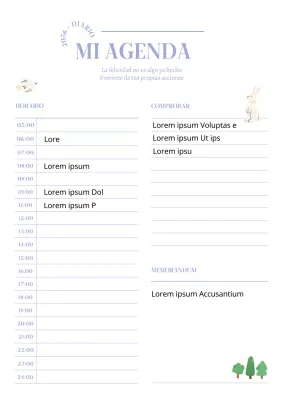 2056 - DIARIO
MI AGENDA
La felicidad no es algo ya hecho
Proviene de tus propias acciones
HORARIO
05:00
06:00 Lore
07:00
08:00 Lorem ipsum
09:00
10:00 Lorem ipsum Dol
11:00 Lorem ipsum P
12:00
13:00
14:00
15:00
16:00
17:00
18:00
19:00
20:00
21:00
22:00
23:00
24:00
COMPROBAR
Lorem ipsum Voluptas e
Lorem ipsum Ut ips
Lorem ipsu
MEMORÁNDUM
Lorem ipsum Accusantium